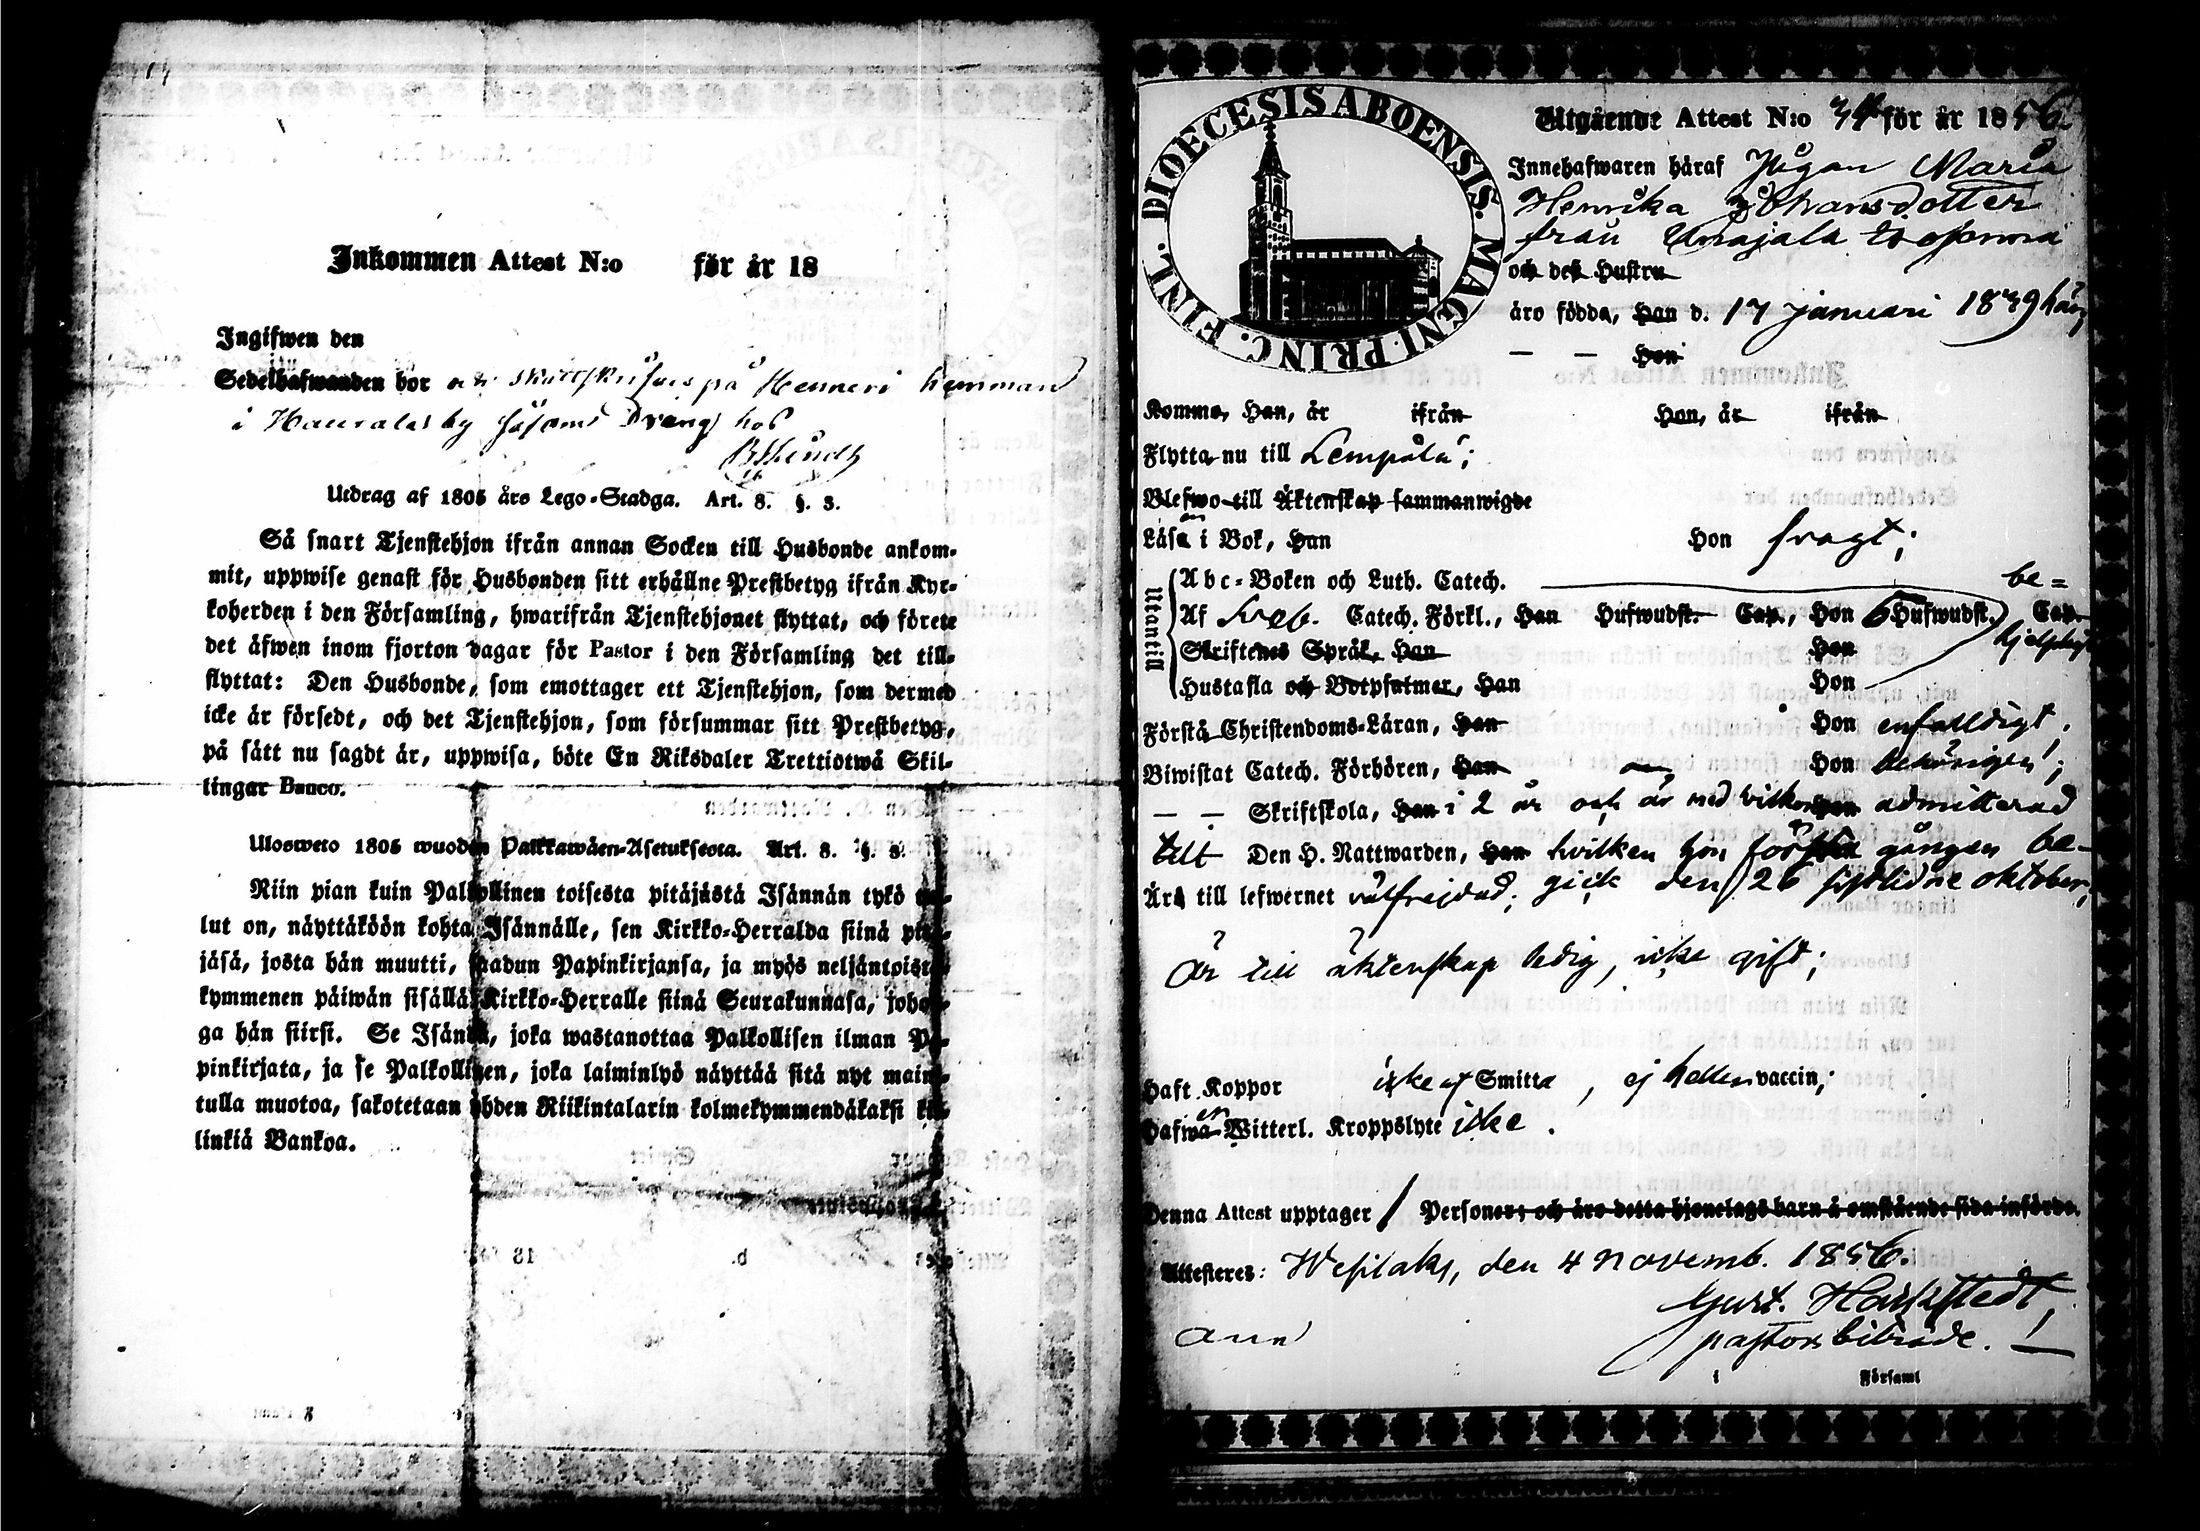 Inkommen Attest N:o för år 18
Ingifwen den
Sedelhafwanden bor på Henneri hemman
i by såsom Dräng hos
Utdrag af 1805 års Lego-Stadga. Art. 8. §. 3.
Så snart Tjenstehjon ifrån annan Socken till Husbonde ankom-
mit, uppwise genast för Husbonden sitt erhållne Prestbetyg ifrån Kyr-
koherden i den Församling, hwarifrån Tjenstehjonet flyttat, och förete
det äfwen inom fjorton dagar för Pastor i den Församling det till-
flyttat: Den Husbonde, som emottager ett Tjenstehjon, som dermed
icke är försedt, och det Tjenstehjon, som försummar sitt Prestbetyg,
på sätt nu sagdt är, uppwisa, böte En Riksdaler Trettiotwå Skil-
lingar Banco.
Ulosweto 1805 wuoden Palkkawäen-Asetuksesta. Art. 8. §. 3.
Niin pian kuin Palkollinen toisesta pitäjästä Isännän tykö tul-
lut on, näyttäköön kohta Isännälle, sen Kirkko-Herralda siinä pitä-
jäsä, josta hän muutti, saadun Papinkirjansa, ja myös neljäntoista
kymmenen päiwän sisällä Kirkko-Herralle siinä Seurakunnasa, johon-
ga hän siirsi. Se Isändä, joka wastanottaa Palkollisen ilman Pa-
pinkirjata, ja se Palkollinen, joka laiminlyö näyttää sitä nyt maini-
tulla muotoa, sakotetaan yhden Riikintalarin kolmekymmendäkaksi kil-
linkiä Bankoa.
DIOECESIS ABOENSIS. MAGNI. PRINC. FINL.
Utgående Attest N:o för år 1856.
Innehafwaren häraf Pigan Maria
Henrika Johansdotter
från
och dess Hustru
äro födda, Han d. 17 januari 1839 här;
— — Hon
Komma, Han, år ifrån Hon, år ifrån
Flytta nu till Lempälä;
Blefwo till Äktenskap sammanwigde
Läsa i Bok, Han Hon svagt;
Utantill
Abc-Boken och Luth. Catech.
Af Sveb. Catech. Förkl., Han Hufwudst. Cap., Hon 5 Hufwudst. Cap. be=
Skriftenes Språk, Han Hon hjelpligt
Hustafla och Botpsalmer, Han Hon
Förstå Christendoms-Läran, Han Hon enfalldigt;
Biwistat Catech. Förhören, Han Hon behörigen;
— — Skriftskola, Han i 2 år och är med vilkor Hon admitterad
till Den H. Nattwarden, Han hvilken hon första gången be-
Äro till lefwernet välfrejdad; gick den 26 sistlidne oktober;
Är till äktenskap ledig, icke gift;
Haft Koppor icke af Smitta, ej heller vaccin;
Hafwa Witterl. Kroppslyte icke.
Denna Attest upptager 1 Personer; och äro detta hjonelags barn å omstående sida införde.
Attesteres: Wesilaks, den 4 novemb. 1856.
pastorsbiträde.
i Församl